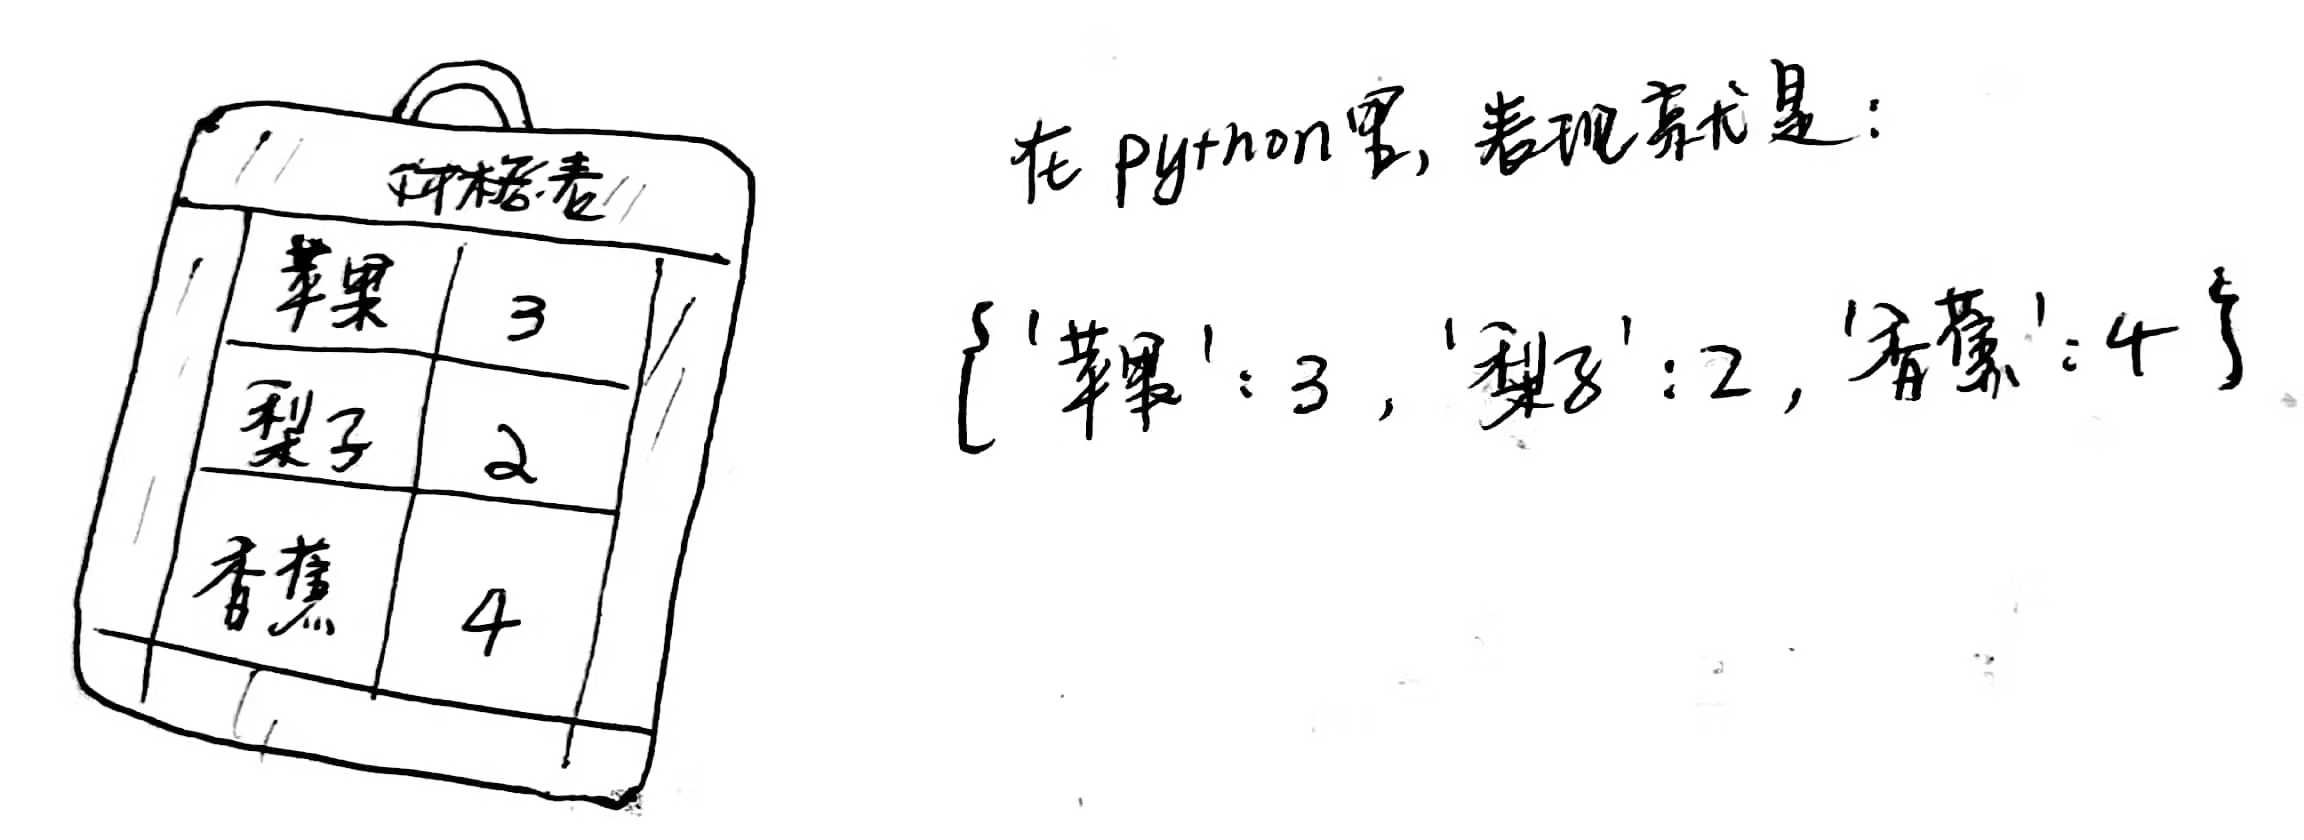 价格表
苹果 3
梨子 2
香蕉 4
在python里,表现就是:
{'苹果':3,'梨子':2,'香蕉':4}